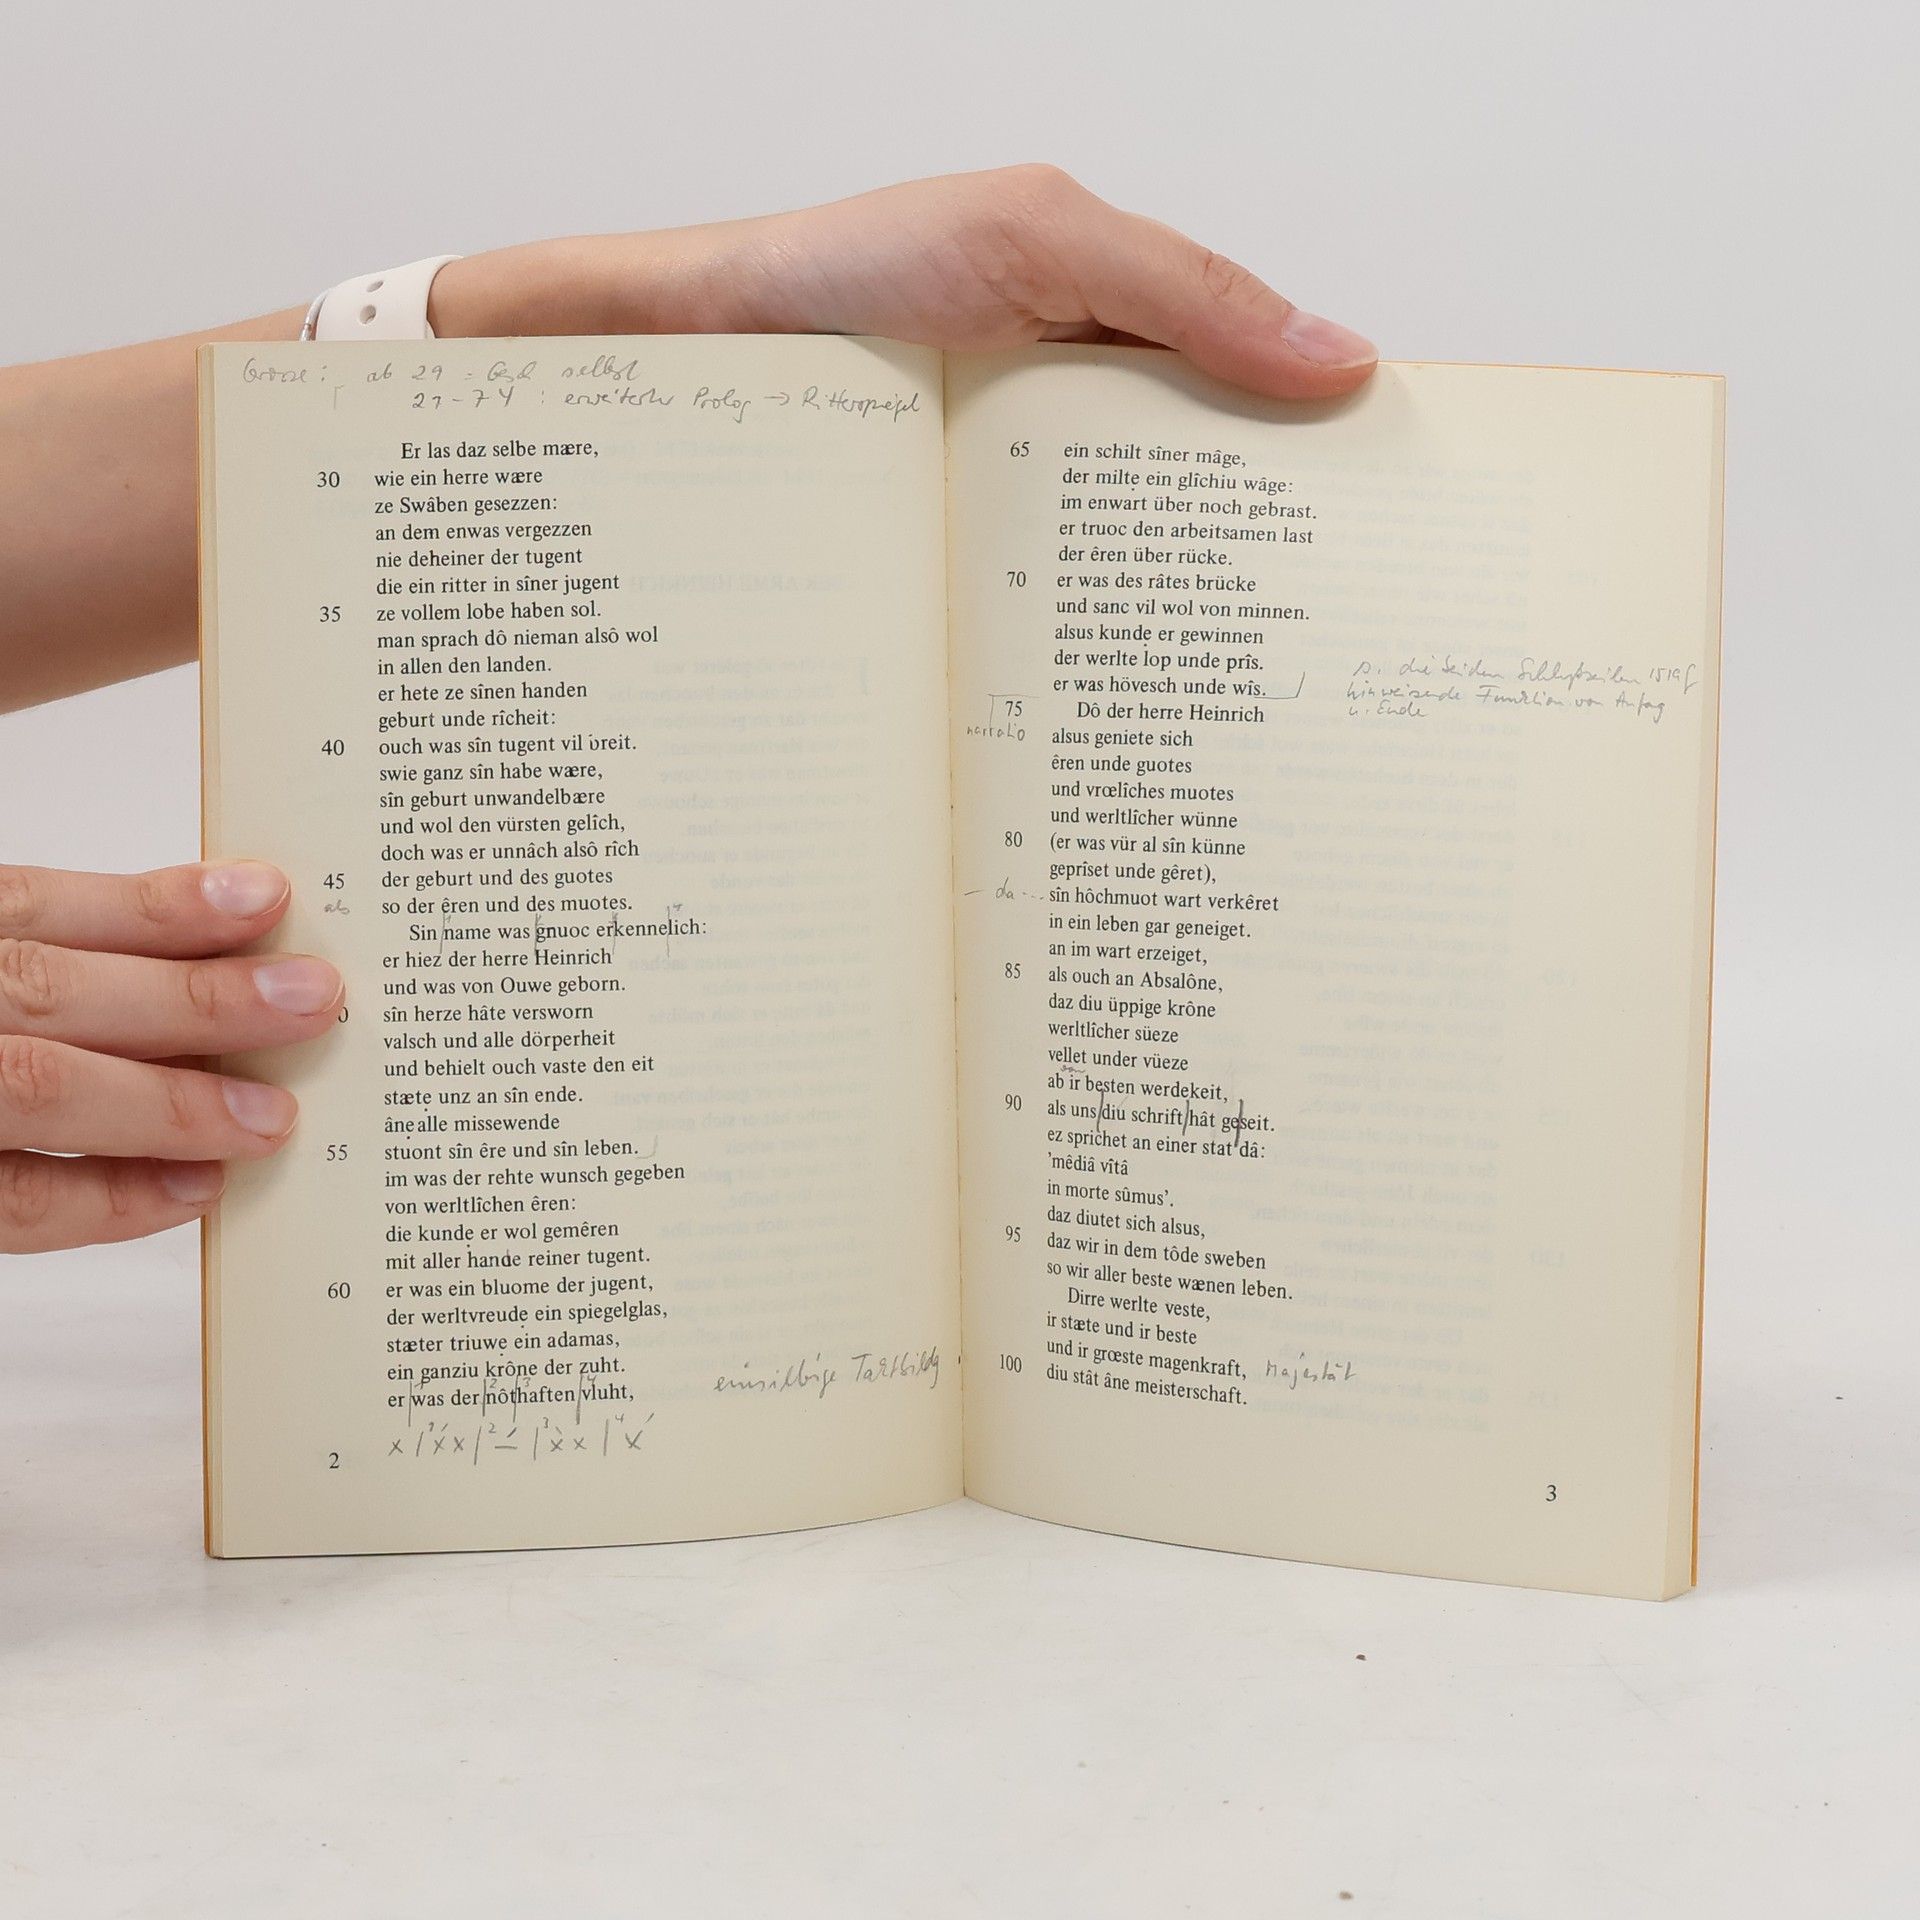 ab 29 = Gesch selbst
29-74 : erweiterter Prolog → Ritterspiegel
Er las daz selbe mære,
30 wie ein herre wære
ze Swâben gesezzen:
an dem enwas vergezzen
nie deheiner der tugent
die ein ritter in sîner jugent
35 ze vollem lobe haben sol.
man sprach dô nieman alsô wol
in allen den landen.
er hete ze sînen handen
geburt unde rîcheit:
40 ouch was sîn tugent vil breit.
swie ganz sîn habe wære,
sîn geburt unwandelbære
und wol den vürsten gelîch,
doch was er unnâch alsô rîch
45 der geburt und des guotes
als so der êren und des muotes.
Sin name was gnuoc erkennelich:
er hiez der herre Heinrich
und was von Ouwe geborn.
0 sîn herze hâte versworn
valsch und alle dörperheit
und behielt ouch vaste den eit
stætẹ unz an sîn ende.
ânẹ alle missewende
55 stuont sîn êre und sîn leben.
im was der rehte wunsch gegeben
von werltlîchen êren:
die kundẹ er wol gemêren
mit aller hande reiner tugent.
60 er was ein bluome der jugent,
der werltvreudẹ ein spiegelglas,
stæter triuwẹ ein adamas,
ein ganziu krône der zuht.
er was der nôthaften vluht,
einsilbige Taktbildg
x | x́ x | – | x̀ x | x́
2
65 ein schilt sîner mâge,
der miltẹ ein glîchiu wâge:
im enwart über noch gebrast.
er truoc den arbeitsamen last
der êren über rücke.
70 er was des râtes brücke
und sanc vil wol von minnen.
alsus kundẹ er gewinnen
der werlte lop unde prîs.
er was hövesch unde wîs.
s. die beiden Schlußzeilen 1519f
hinweisende Funktion von Anfang
u. Ende
75 Dô der herre Heinrich
narratio alsus geniete sich
êren unde guotes
und vrœlîches muotes
und werltlîcher wünne
80 (er was vür al sîn künne
geprîset unde gêret),
- da --- sîn hôchmuot wart verkêret
in ein leben gar geneiget.
an im wart erzeiget,
85 als ouch an Absalône,
daz diu üppige krône
werltlîcher süeze
vellet under vüeze
von
ab ir besten werdekeit,
90 als uns diu schrift hât geseit.
ez sprichet an einer stat dâ:
'mêdiâ vîtâ
in morte sûmus'.
daz diutet sich alsus,
95 daz wir in dem tôde sweben
so wir aller beste wænen leben.
Dirre werlte veste,
ir stæte und ir beste
und ir grœste magenkraft, Majestät
100 diu stât âne meisterschaft.
3